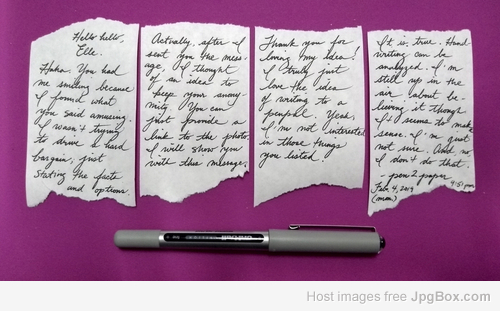 Hello hello,
Elle.
Haha. You had
me smiling because
I found what
you said amusing.
I wasn't trying
to drive a hard
bargain, just
stating the facts
and options.
Actually, after I
sent you the mess-
age, I thought
of an idea to
keep your anony-
mity. You can
just provide a
link to the photo.
I will show you
with this message.
Thank you for
loving my idea!
I truly just
love the idea
of writing to a
penpal. Yeah,
I'm not interested
in those things
you listed.
It is true. Hand-
writing can be
analyzed. I'm
still up in the
air about be-
lieving it though
It seems to make
sense. I'm just
not sure. And no,
I don't do that.
- pen2paper
4:51 pm
Feb 4, 2019
(mon)
Host images free JpgBox.com